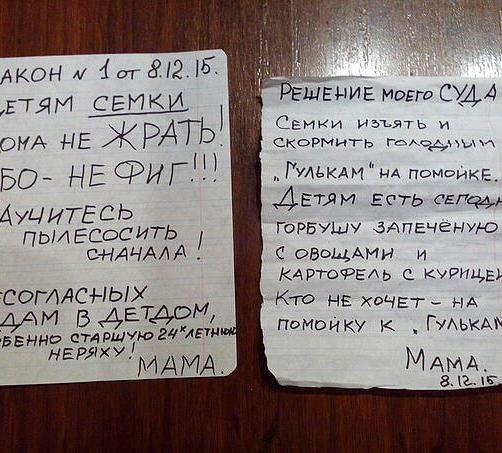 АКОН N 1 от 8.12.15.
ЕТЯМ СЕМКИ
ОМА НЕ ЖРАТЬ!
БО - НЕ ФИГ!!!
АУЧИТЕСЬ
ПЫЛЕСОСИТЬ
СНАЧАЛА!
ЕСОГЛАСНЫХ
ДАМ В ДЕТДОМ,
ОБЕННО СТАРШУЮ 24х ЛЕТНЮЮ
НЕРЯХУ!
МАМА.
РЕШЕНИЕ МОЕГО СУДА
СЕМКИ ИЗЪЯТЬ И
СКОРМИТЬ ГОЛОДНЫМ
"ГУЛЬКАМ" НА ПОМОЙКЕ.
ДЕТЯМ ЕСТЬ СЕГОДН
ГОРБУШУ ЗАПЕЧЁНУЮ
С ОВОЩАМИ И
КАРТОФЕЛЬ С КУРИЦЕЙ
КТО НЕ ХОЧЕТ - НА
ПОМОЙКУ К "ГУЛЬКАМ
МАМА.
8.12.15